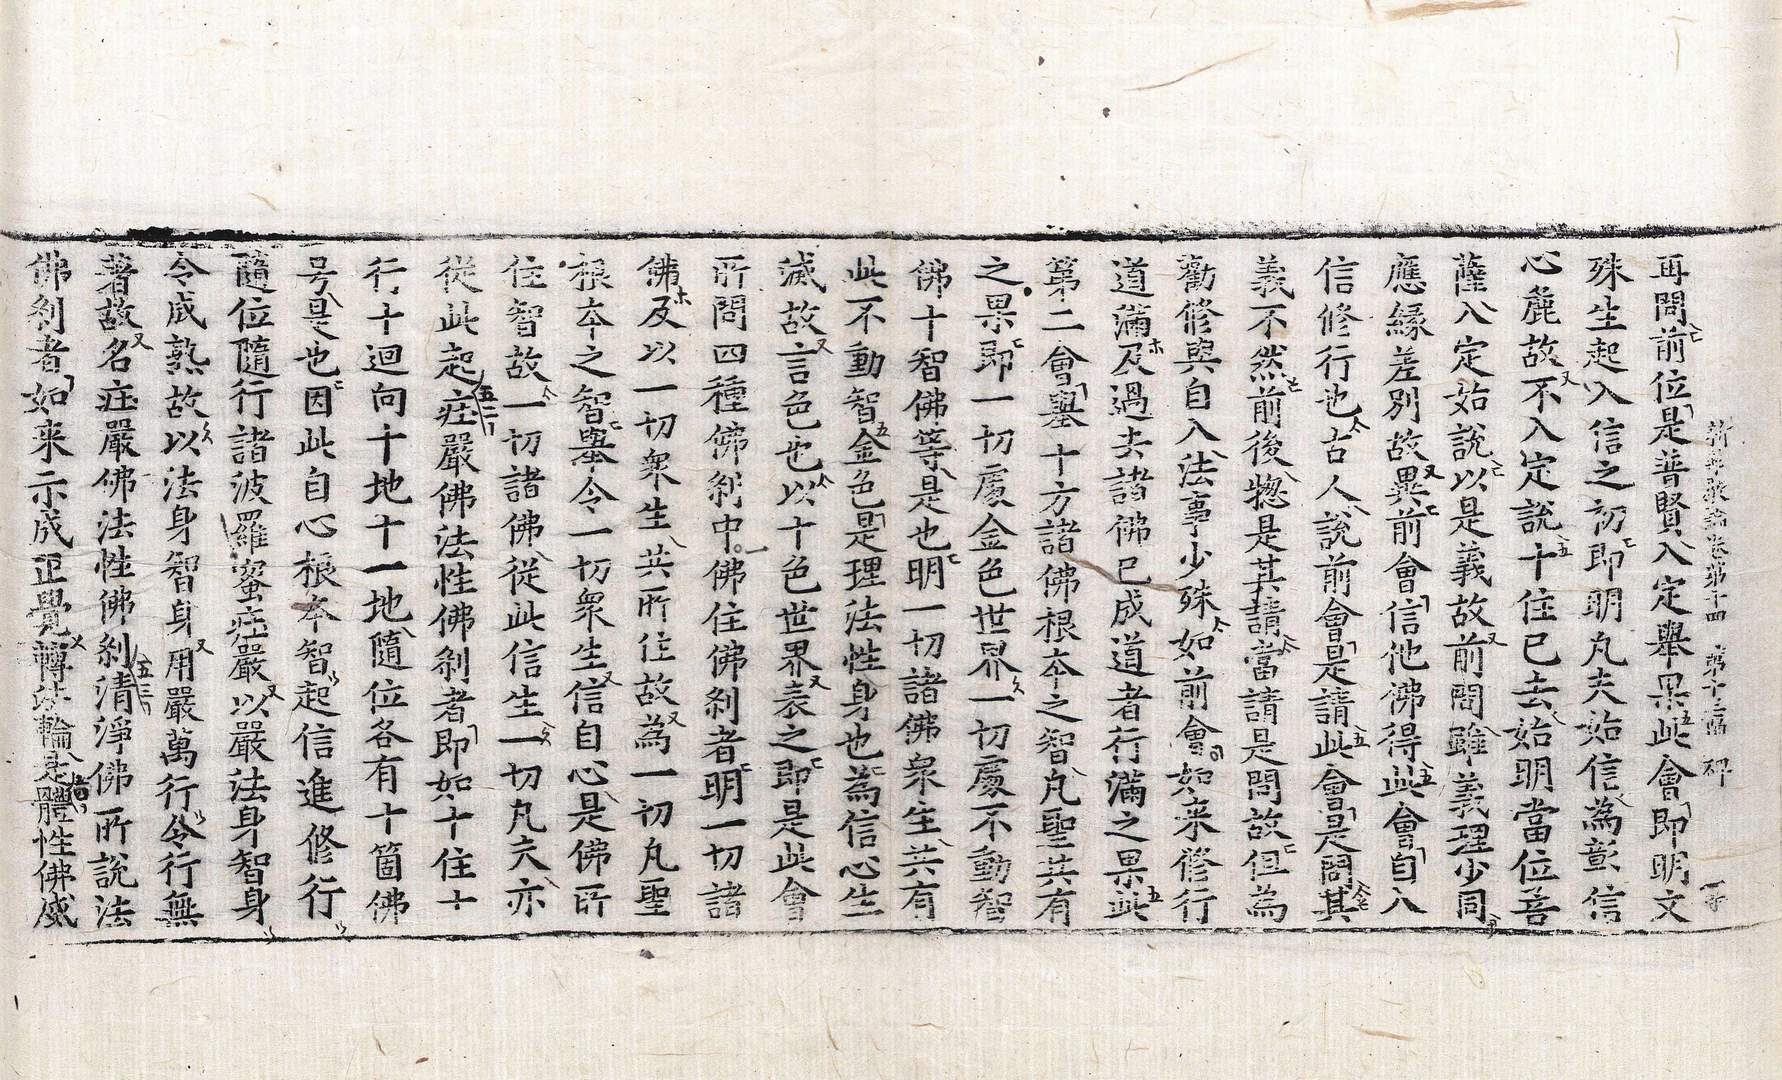 新華嚴論卷第十四 第十三張 碑
再問前位是普賢入定舉果此會即明文
殊生起入信之初即明凡夫始信為彰信
心麁故不入定說十住已去始明當位菩
薩入定始說以是義故前問雖義理少同
應緣差別故異前會信他佛得此會自入
信修行也古人說前會是請此會是問其
義不然前後惣是其請當請是問故但為
勸修與自入法事少殊如前會如来修行
道滿及過去諸佛已成道者行滿之果此
第二會舉十方諸佛根夲之智凡聖共有
之果即一切處金色世界一切處不動智
佛十智佛等是也明一切諸佛衆生共有
此不動智金色是理法性身也為信心生
滅故言色也以十色世界表之即是此會
所問四種佛剎中佛住佛剎者明一切諸
佛及以一切衆生共所住故為一初凡聖
根夲之智舉令一切衆生信自心是佛所
住智故一切諸佛從此信生一切凡夫亦
從此起莊嚴佛法性佛剎者即如十住十
行十迴向十地十一地隨位各有十箇佛
号是也因此自心根本智起信進修行
隨位隨行諸波羅蜜莊嚴以嚴法身智身
令成熟故以法身智身用嚴萬行令行無
著故名莊嚴佛法性佛剎清淨佛所說法
佛剎者如来示成正覺轉法輪是體性佛威